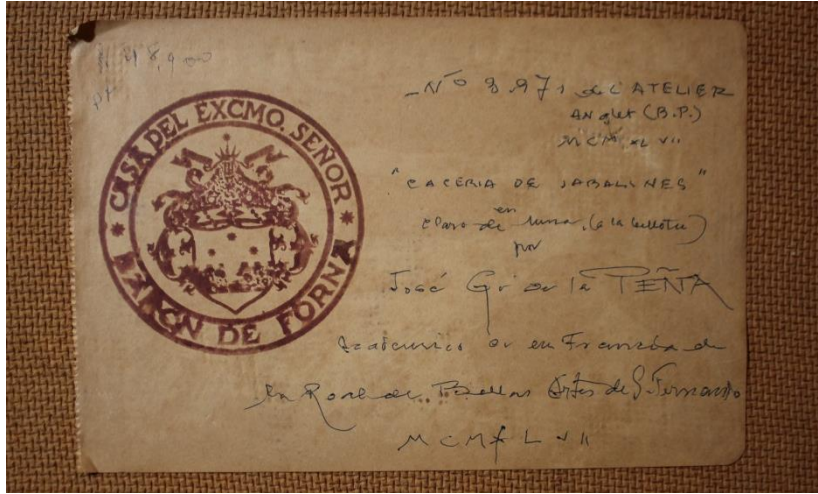 CASA DEL EXCMO. SEÑOR
BARON DE FORNA
Nº 8.971 de L'ATELIER
Anglet (B.P.)
MCMXLVII
"CACERIA DE JABALINES"
en
Claro de luna, (a la
por
José Gº de la PEÑA
Academico en Francia de
la Real de Bellas Artes de S. Fernando
MCMXLVII